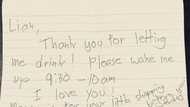 Liam,
Thank you for letting
me drink! Please wake me
up 9:30 - 10am
I love you!
for your little